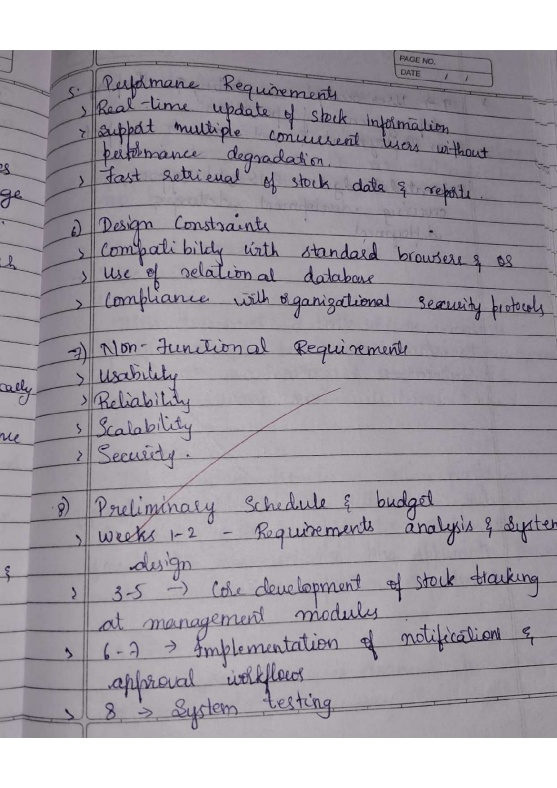 PAGE NO.
DATE / /
5. Performane Requirements
> Real-time update of stock information
> support multiple concurrent users without
performance degradation.
> Fast retrieval of stock data & reports.
6) Design Constraints
> Compatibility with standard browsers & OS
> Use of relational database
> Compliance with organizational security protocols
7) Non-Functional Requirements
> Usability
> Reliability
> Scalability
> Security.
8) Preliminary Schedule & budget
> weeks 1-2 - Requirements analysis & System
design
> 3-5 → Core development of stock tracking
at management modules
> 6-7 → Implementation of notifications &
approval workflows
> 8 → System testing
ge
cally
&